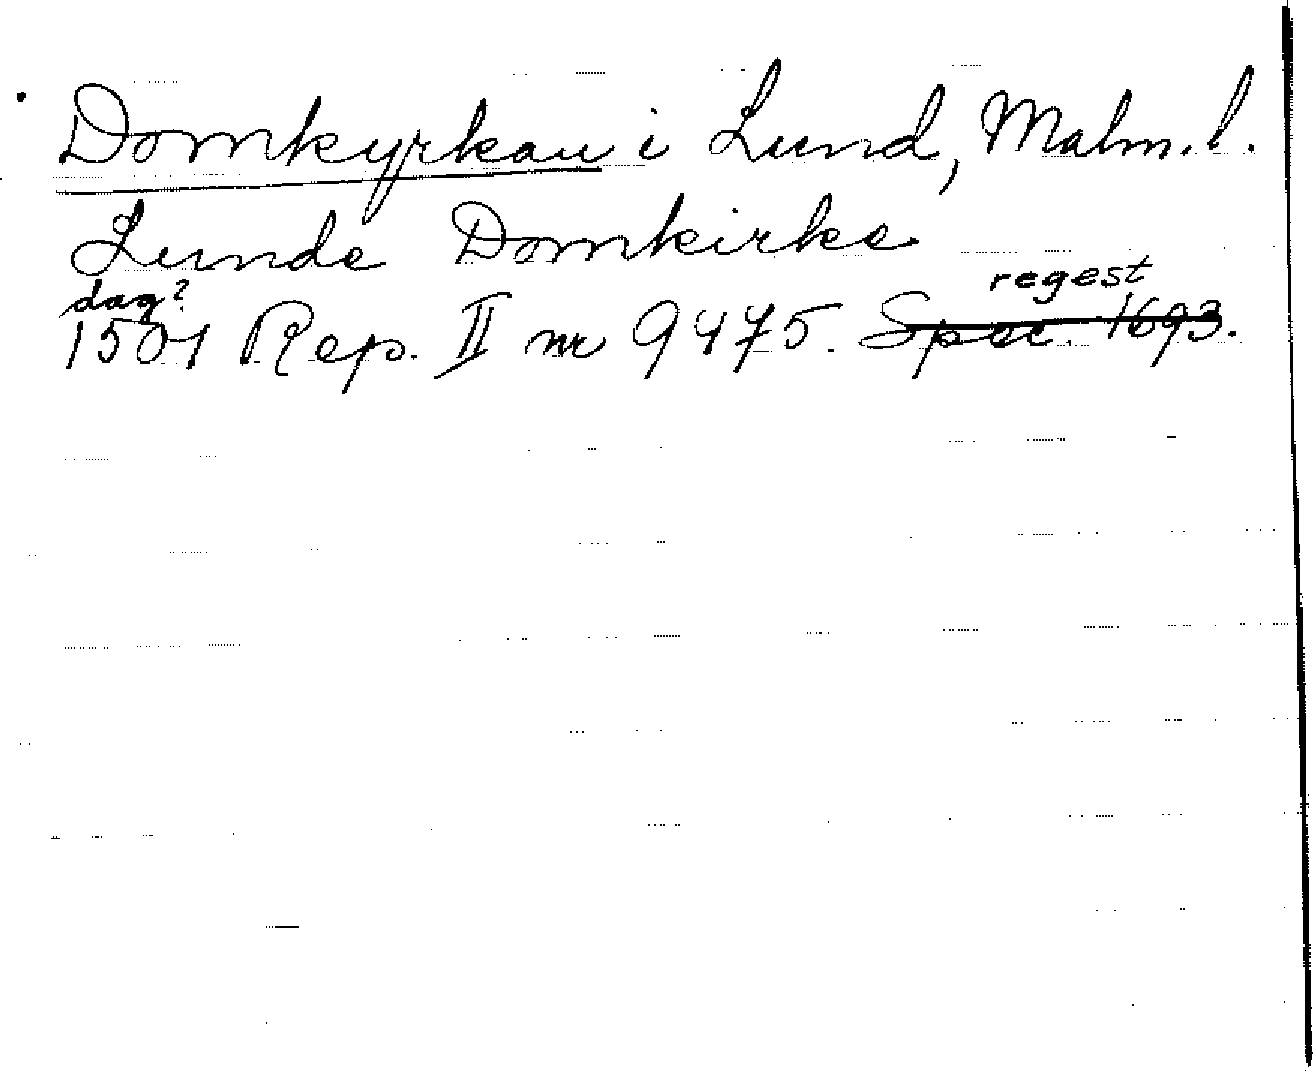 Domkyrkan i Lund, Malm.l.
Lunde Domkirke
dag? regest
1501 Rep. II nr 9475. Spec. 1693.